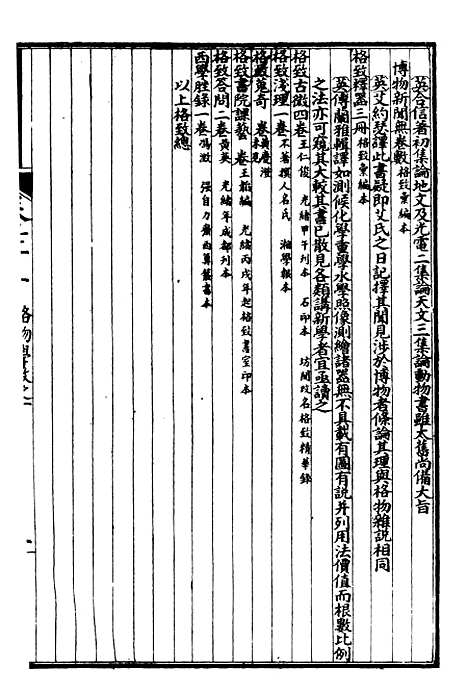 英合信著初集論地文及光電二集論天文三集論動物書雖太舊尚備大旨
博物新聞無卷數格致彙編本
英艾約瑟譯此書疑即艾氏之日記擇其聞見涉於博物者條論其理與格物雜説相同
格致釋器三冊格致彙編本
英傅蘭雅輯譯如測候化學重學水學照像測繪諸器無不具載有圖有説并列用法價值而根數比例
之法亦可窺其大較其書已散見各類講新學者宜亟讀之
格致古微四卷王仁俊 光緒甲午列本 石印本 坊間改名格致精華錄
格致淺理一卷不著撰人名氏 湘學報本
格致蒐奇 卷黃慶澄 未見
格致書院課藝 卷王韜編 光緒丙戌年起格致書室印本
格致答問二卷黃英 光緒年成都刊本
西學脞錄一卷馮澂 強自力齋西算叢書本
以上格致總
格物